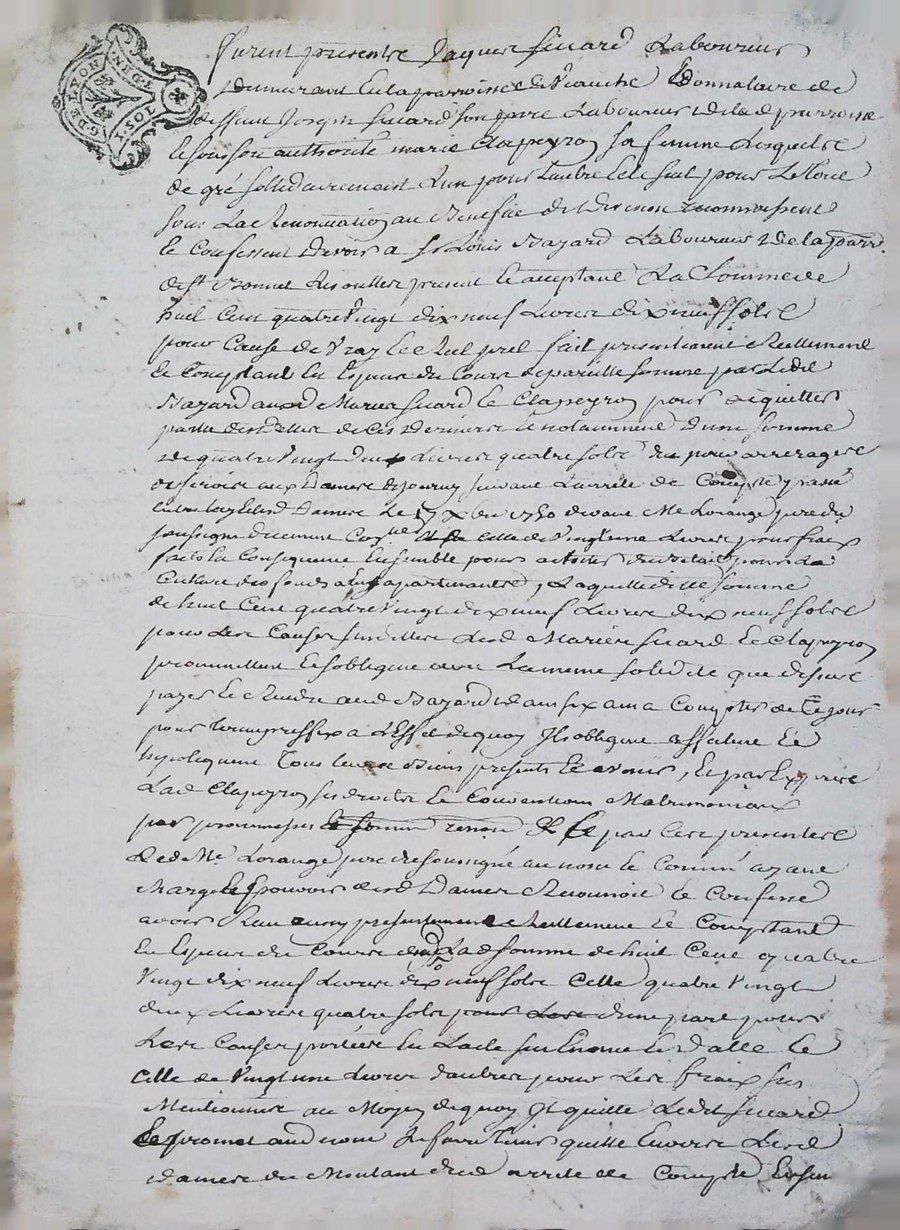 G.DE LYON
NE.G.E
I.SOL
furent presents Jaques Sicard Laboureur
demeurant en la parroisse de donnataire de
deffunt Joseph Sicard son pere Laboureur de lad parroisse
et sous son authorité marie Clapeyron sa femme Lesquels
de gré solidairement L'un pour L'autre et seul pour Le tout
sous La Renonciation au Benefice de Division reconnoissent
et Confessent devoir a Sr Louis Bayard Laboureur de la parr.
de St Bonnet Les oulles present et acceptant La Somme de
huit Cent quatre Vingt dix neuf Livres dix neuf sols
pour Cause de Vray et Reel prest fait presentement Reellement
et Comptant En Especes du Cours de pareille somme par Led
Bayard aux d Mariés Sicard et Clapeyron pour acquitter
partie des dettes de Ces Derniers et notamment d'une somme
de quatre Vingt deux Livres quatre sols du pour arrerages
de servis aux Dames de suivant L'arreté de Compte passé
entre Lesd Dames Le 17 Xbre 1750 devant Me Lorange
soussigné celle de Vingt une Livres pour frais
faits En Consequence Ensemble pour achetter des bestiaux pour La
Culture des fonds a Eux apartenants, Laquelle ditte somme
de huit Cent quatre Vingt dix neuf Livres dix neuf sols
pour Les Causes susdittes Lesd Mariés Sicard et Clapeyron
promettent et s'obligent avec La meme solidité que dessus
payer et Rendre aud Bayard dans six ans a Compter de Ce jour
pour terme prefix a L'Effet de quoy Ils obligent affectent et
hypotequent Tous Leurs Biens presents et avenir, Et par Exprès
Lad Clapeyron ses droits et Conventions Matrimoniaux
par promesses Et par Ces presentes
Led Me Lorange soussigné au nom et Comm ayant
Charge et pouvoir desd Dames Reconnoit et Confesse
avoir Receu aussy presentement Reellement et Comptant
En Especes du Cours Lad somme de huit Cent quatre
Vingt dix neuf Livres dix neuf sols Celle quatre Vingt
deux Livres quatre sols pour d'une part pour
Les Causes portées En L'acte sus Enoncé et Datté et
Celle de Vingt une Livres d'autres pour Les frais sus
Mentionnés au Moyen de quoy Il quitte Ledit Sicard
et promet aud nom Le faire tenir quitte Envers Lesd
dames du Montant dud arreté de Compte